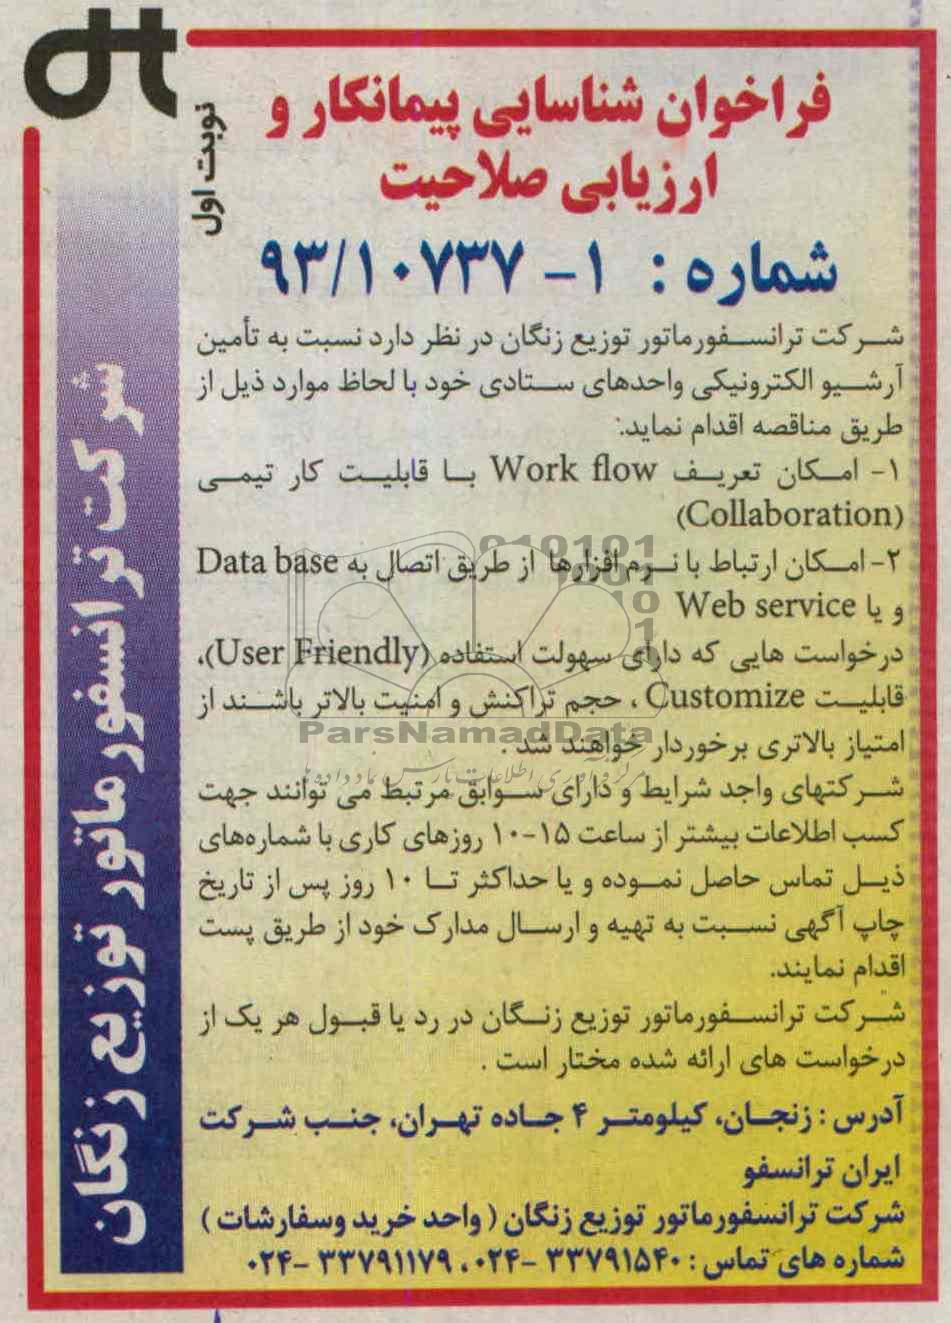 فراخوان شناسایی پیمانکار و
ارزیابی صلاحیت
نوبت اول
شماره : ۱- ۹۳/۱۰۷۳۷
شرکت ترانسفورماتور توزیع زنگان در نظر دارد نسبت به تأمین
آرشیو الکترونیکی واحدهای ستادی خود با لحاظ موارد ذیل از
طریق مناقصه اقدام نماید:
۱- امکان تعریف Work flow با قابلیت کار تیمی
(Collaboration)
۲- امکان ارتباط با نرم افزارها از طریق اتصال به Data base
و یا Web service
درخواست هایی که دارای سهولت استفاده (User Friendly)،
قابلیت Customize ، حجم تراکنش و امنیت بالاتر باشند از
امتیاز بالاتری برخوردار خواهند شد .
شرکتهای واجد شرایط و دارای سوابق مرتبط می توانند جهت
کسب اطلاعات بیشتر از ساعت ۱۵-۱۰ روزهای کاری با شماره‌های
ذیل تماس حاصل نموده و یا حداکثر تا ۱۰ روز پس از تاریخ
چاپ آگهی نسبت به تهیه و ارسال مدارک خود از طریق پست
اقدام نمایند.
شرکت ترانسفورماتور توزیع زنگان در رد یا قبول هر یک از
درخواست های ارائه شده مختار است .
آدرس : زنجان، کیلومتر ۴ جاده تهران، جنب شرکت
ایران ترانسفو
شرکت ترانسفورماتور توزیع زنگان ( واحد خرید وسفارشات )
شماره های تماس : ۳۳۷۹۱۵۴۰ -۰۲۴، ۳۳۷۹۱۱۷۹ -۰۲۴
شرکت ترانسفورماتور توزیع زنگان
ParsNamadData
مرکز فرآوری اطلاعات پارس نماد داده ها